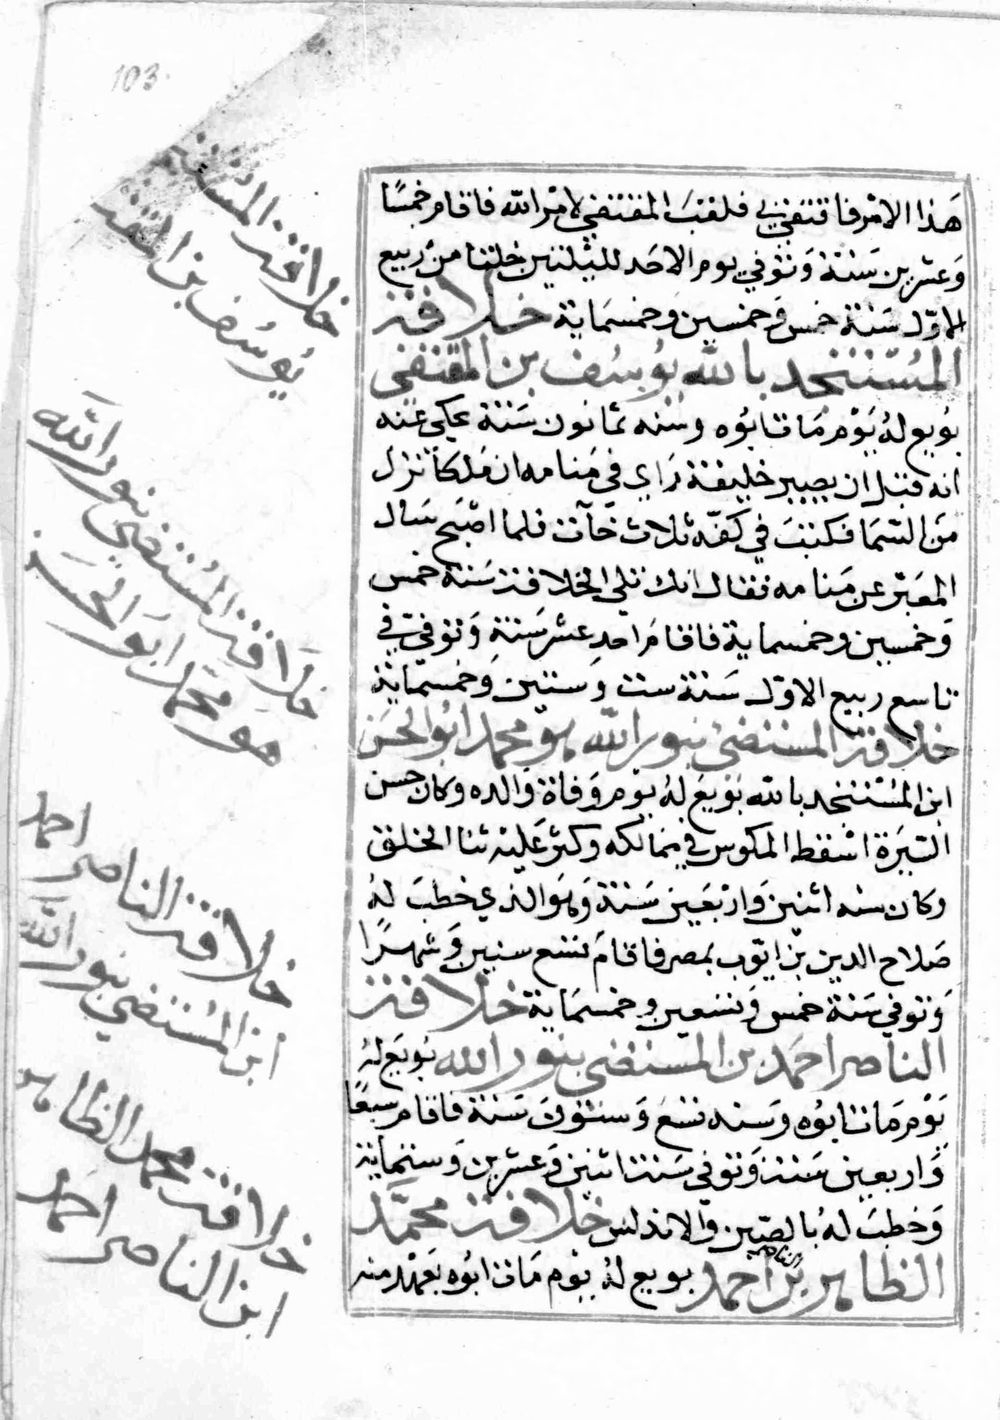 103
هَذا الامْر فاقتفي بي فلقبَ المقتفي لامْر الله فاقام خمسًا
وَعشرين سَنة وَتوفي يوم الاحَد لليلتين خلتا من ربيع
الاوّل سَنة خمس وَخمسين وخمسماية خلافة
المُسْتنجد بالله يُوسُف بن المقتفي
بويع لهُ يَوْم مَات ابُوه وسنه ثمانون سَنة يحكي عنه
انه قبل ان يصير خليفة رَاي في مَنامه ان مَلكا نزل
منَ السَّما فكتبَ في كَفّه ثلاث خآت فلما اصْبح سَال
المعَبّر عن مَنامه فقال انك تلي الخلافة سَنة خمس
وَخمسين وخمسماية فاقامَ احد عشر سَنة وَتوفي في
تاسع ربيع الاوّل سَنة ست وستين وَخمسماية
خلافة المستضئ بنور الله هو محمد ابُو الحسَن
ابن المُسْتنجد بالله بوْيعَ لهُ يوْم وَفاة وَالده وَكان حسن
السّيَرة اسْقط المكوس في ممالكه وكثر عَليْه ثنا الخلق
وكان سنه اثنين وَاربَعين سَنة وَهوَ الذي خطبَ لهُ
صَلاح الدين بن ايّوب بمصر فاقامَ تسع سنين وَشهرًا
وَتوفي سَنة خمس وَتسعين وخمسمَاية خلافة
الناصر احمَد بن المستضئ بنور الله بُويَع لهُ
يَوْم مَات ابُوه وَسنه تسْع وَستون سَنة فاقام سبعًا
وَاربعين سَنة وَتوفي سَنة اثنين وَعشرين وَستماية
وَخطبَ لهُ بالصّين وَالاندلس خلافة محمَّد
الظاهر بن الناصر احمد بويع لهُ يوْم مَات ابُوه بعَهْد منه
خلافة المستنجد
يُوسُف بن المقتفي
خلَافة المُستضئ بنور الله
هو محمّد ابو الحسَن
خلافة الناصر احمد
ابن المُستضئ بنور الله
خلافة محمد الظاهر
ابن الناصر احمد